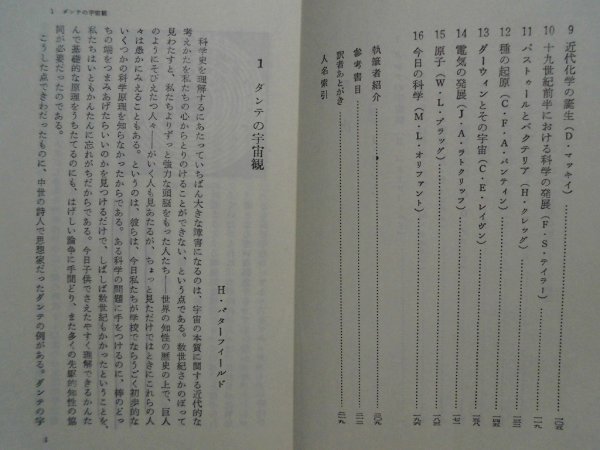 9 近代化学の誕生(D・マッキイ)……一〇五
10 十九世紀前半における科学の発展(F・S・テイラー)
11 パストゥールとバクテリア(H・クレッグ)
12 種の起原(C・F・A・パンティン)
13 ダーウィンとその宇宙(C・E・レイヴン)
14 電気の発展(J・A・ラトクリッフ)
15 原子(W・L・ブラッグ)
16 今日の科学(M・L・オリファント)
執筆者紹介
参考書目
訳者あとがき
人名索引
1 ダンテの宇宙観
1 ダンテの宇宙観
H・バターフィールド
科学史を理解するにあたっていちばん大きな障害になるのは、宇宙の本質に関する近代的な
考えかたを私たちの心からとりのけることができない、という点である。数世紀さかのぼって
見わたすと、私たちよりずっと強力な頭脳をもった人たち――世界の知性の歴史の上で、巨人
のようにそびえたつ人々――がいく人も見あたるが、ちょっと見ただけではときにこれらの人
々は愚かにみえることもある。というのは、彼らは、今日私たちが学校でならうごく初歩的な
いくつかの科学原理を知らなかったからである。ある科学の問題に手をつけるのに、棒のどっ
ちの端をつまみあげたらいいのかを見つけるだけで、しばしば数世紀もかかったということを、
私たちはいともかんたんに忘れがちだからである。今日子供でさえたやすく理解できるかんた
んで基礎的な原理をうちたてるのにも、はげしい論争に手間どり、また多くの先駆的知性の協
同が必要だったのである。
こうした点できわだったものに、中世の詩人で思想家だったダンテの例がある。ダンテの宇